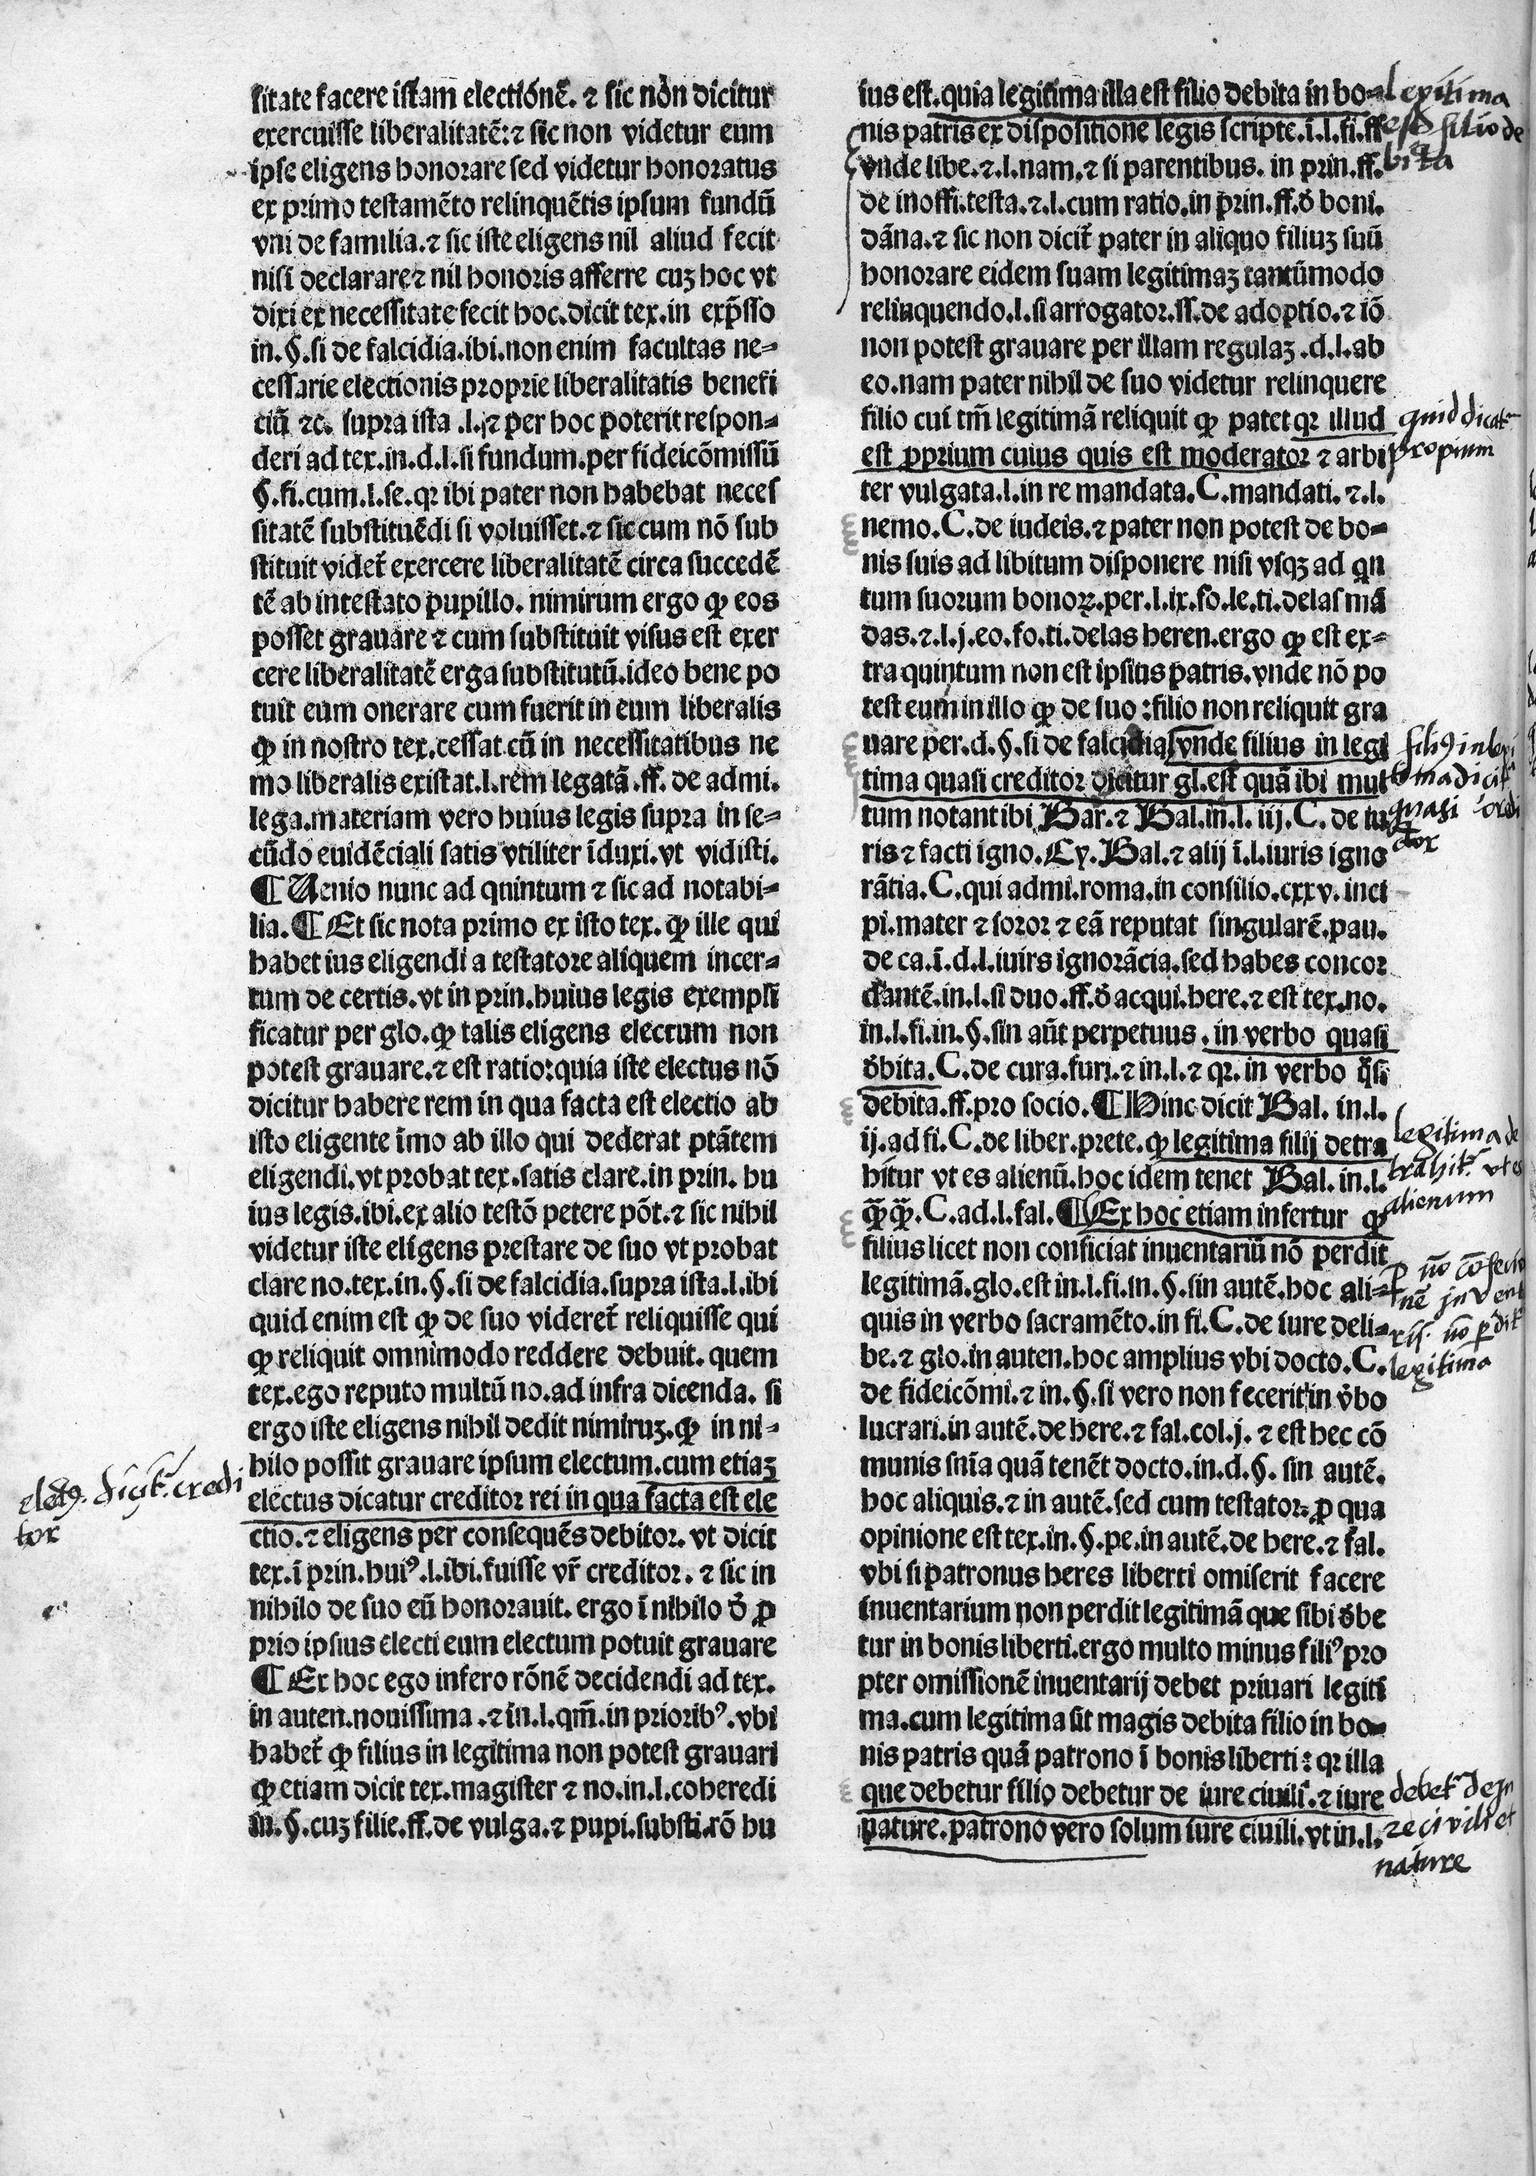 sitate facere istam electionē. ⁊ sic non dicitur
exercuisse liberalitatē: ⁊ sic non videtur eum
ipse eligens honorare sed videtur honoratus
ex primo testamēto relinquētis ipsum fundū
vni de familia. ⁊ sic iste eligens nil aliud fecit
nisi declarare ⁊ nil honoris afferre cuꝫ hoc vt
dixi ex necessitate fecit hoc. dicit tex. in exp̄sso
in. §. si de falcidia. ibi. non enim facultas ne⸗
cessarie electionis proprie liberalitatis benefi
ciū ⁊c. supra ista .l. ⁊ per hoc poterit respon⸗
deri ad tex. in. d. l. si fundum. per fideicōmissū
§. fi. cum. l. se. qꝛ ibi pater non habebat neces
sitatē substituēdi si voluisset. ⁊ sic cum nō sub
stituit videt̄ exercere liberalitatē circa succedē
tē ab intestato pupillo. nimirum ergo ꝙ eos
posset grauare ⁊ cum substituit visus est exer
cere liberalitatē erga substitutū. ideo bene po
tuit eum onerare cum fuerit in eum liberalis
ꝙ in nostro tex. cessat. cū in necessitatibus ne
mo liberalis existat. l. rem legatā. ff. de admi.
lega. materiam vero huius legis supra in se⸗
cūdo euidēciali satis vtiliter īduxi. vt vidisti.
¶ Uenio nunc ad quintum ⁊ sic ad notabi⸗
lia. ¶ Et sic nota primo ex isto tex. ꝙ ille qui
habet ius eligendi a testatore aliquem incer⸗
tum de certis. vt in prin. huius legis exempli
ficatur per glo. ꝙ talis eligens electum non
potest grauare. ⁊ est ratio: quia iste electus nō
dicitur habere rem in qua facta est electio ab
isto eligente īmo ab illo qui dederat ptātem
eligendi. vt probat tex. satis clare. in prin. hu
ius legis. ibi. ex alio testō petere pōt. ⁊ sic nihil
videtur iste eligens prestare de suo vt probat
clare no. tex. in. §. si de falcidia. supra ista. l. ibi
quid enim est ꝙ de suo videret̄ reliquisse qui
ꝙ reliquit omnimodo reddere debuit. quem
tex. ego reputo multū no. ad infra dicenda. si
ergo iste eligens nihil dedit nimiruꝫ. ꝙ in ni⸗
hilo possit grauare ipsum electum. cum etiaꝫ
electus dicatur creditor rei in qua facta est ele
ctio. ⁊ eligens per consequēs debitor. vt dicit
tex. ī prin. huiꝰ. l. ibi. fuisse vr̄ creditor. ⁊ sic in
nihilo de suo eū honorauit. ergo ī nihilo d̄ ꝓ
prio ipsius electi eum electum potuit grauare
¶ Ex hoc ego infero rōnē decidendi ad tex.
in auten. nouissima. ⁊ in. l. qm̄. in prioribꝰ. vbi
habet̄ ꝙ filius in legitima non potest grauari
ꝙ etiam dicit tex. magister ⁊ no. in. l. coheredi
in. §. cuꝫ filie. ff. de vulga. ⁊ pupi. substi. rō hu
electꝰ. dicit͛ credi
tor
ius est. quia legitima illa est filio debita in bo⸗
nis patris ex dispositione legis scripte. ī. l. fi. ff.
vnde libe. ⁊. l. nam. ⁊ si parentibus. in prin. ff.
de inoffi. testa. ⁊. l. cum ratio. in prin. ff. d̄ boni.
dāna. ⁊ sic non dicit̄ pater in aliquo filiuꝫ suū
honorare eidem suam legitimaꝫ tantūmodo
relinquendo. l. si arrogator. ss. de adoptio. ⁊ iō
non potest grauare per illam regulaꝫ. d. l. ab
eo. nam pater nihil de suo videtur relinquere
filio cui tm̄ legitimā reliquit ꝙ patet qꝛ illud
est ꝓprium cuius quis est moderator ⁊ arbi
ter vulgata. l. in re mandata. C. mandati. ⁊. l.
nemo. C. de iudeis. ⁊ pater non potest de bo⸗
nis suis ad libitum disponere nisi vsqꝫ ad qn
tum suorum bonoꝝ. per. l. ix. fo. le. ti. delas mā
das. ⁊. l. j. eo. fo. ti. delas heren. ergo ꝙ est ex⸗
tra quintum non est ipsius patris. vnde nō po
test eum in illo ꝙ de suo: filio non reliquit gra
uare per. d. §. si de falcidia vnde filius in legi
tima quasi creditor dicitur gl. est quā ibi mul
tum notant ibi Bar. ⁊ Bal. in. l. iij. C. de iu
ris ⁊ facti igno. Cy. Bal. ⁊ alij ī. l. iuris igno
rātia. C. qui admi. roma. in consilio. cxxv. inci
pi. mater ⁊ soror ⁊ eā reputat singularē. pau.
de ca. ī. d. l. iuirs ignorācia. sed habes concor
dantē. in. l. si duo. ff. d̄ acqui. here. ⁊ est tex. no.
in. l. fi. in. §. sin aūt perpetuus. in verbo quasi
d̄bita. C. de cura. furi. ⁊ in. l. ⁊ qꝛ. in verbo q̄si
debita. ff. pro socio. ¶ Hinc dicit Bal. in. l.
ij. ad fi. C. de liber. prete. ꝙ legitima filij detra
hitur vt es alienū. hoc idem tenet Bal. in. l.
q̄ꝗ̄. C. ad. l. fal. ¶ Ex hoc etiam infertur ꝙ
filius licet non conficiat inuentariū nō perdit
legitimā. glo. est in. l. fi. in. §. sin autē. hoc ali⸗
quis in verbo sacramēto. in fi. C. de iure deli⸗
be. ⁊ glo. in auten. hoc amplius vbi docto. C.
de fideicōmi. ⁊ in. §. si vero non fecerit in v̄bo
lucrari. in autē. de here. ⁊ fal. col. j. ⁊ est hec cō
munis snīa quā tenēt docto. in. d. §. sin autē.
hoc aliquis. ⁊ in autē. sed cum testator. ꝓ qua
opinione est tex. in. §. pe. in autē. de here. ⁊ fal.
vbi si patronus heres liberti omiserit facere
inuentarium non perdit legitimā que sibi d̄be
tur in bonis liberti. ergo multo minus filiꝰ pro
pter omissionē inuentarij debet priuari legiti
ma. cum legitima sit magis debita filio in bo⸗
nis patris quā patrono ī bonis liberti: qꝛ illa
que debetur filio debetur de iure ciuili. ⁊ iure
nature. patrono vero solum iure ciuili. vt in. l.
legitima
est filio de
bita
quid dicat͛
propium
filiꝰ in legi
tima dicit͛
quasi credi
tor
legitima de
trahit͛ vt es
alienum
legitima
debet͛ de ju
re civili et
nature